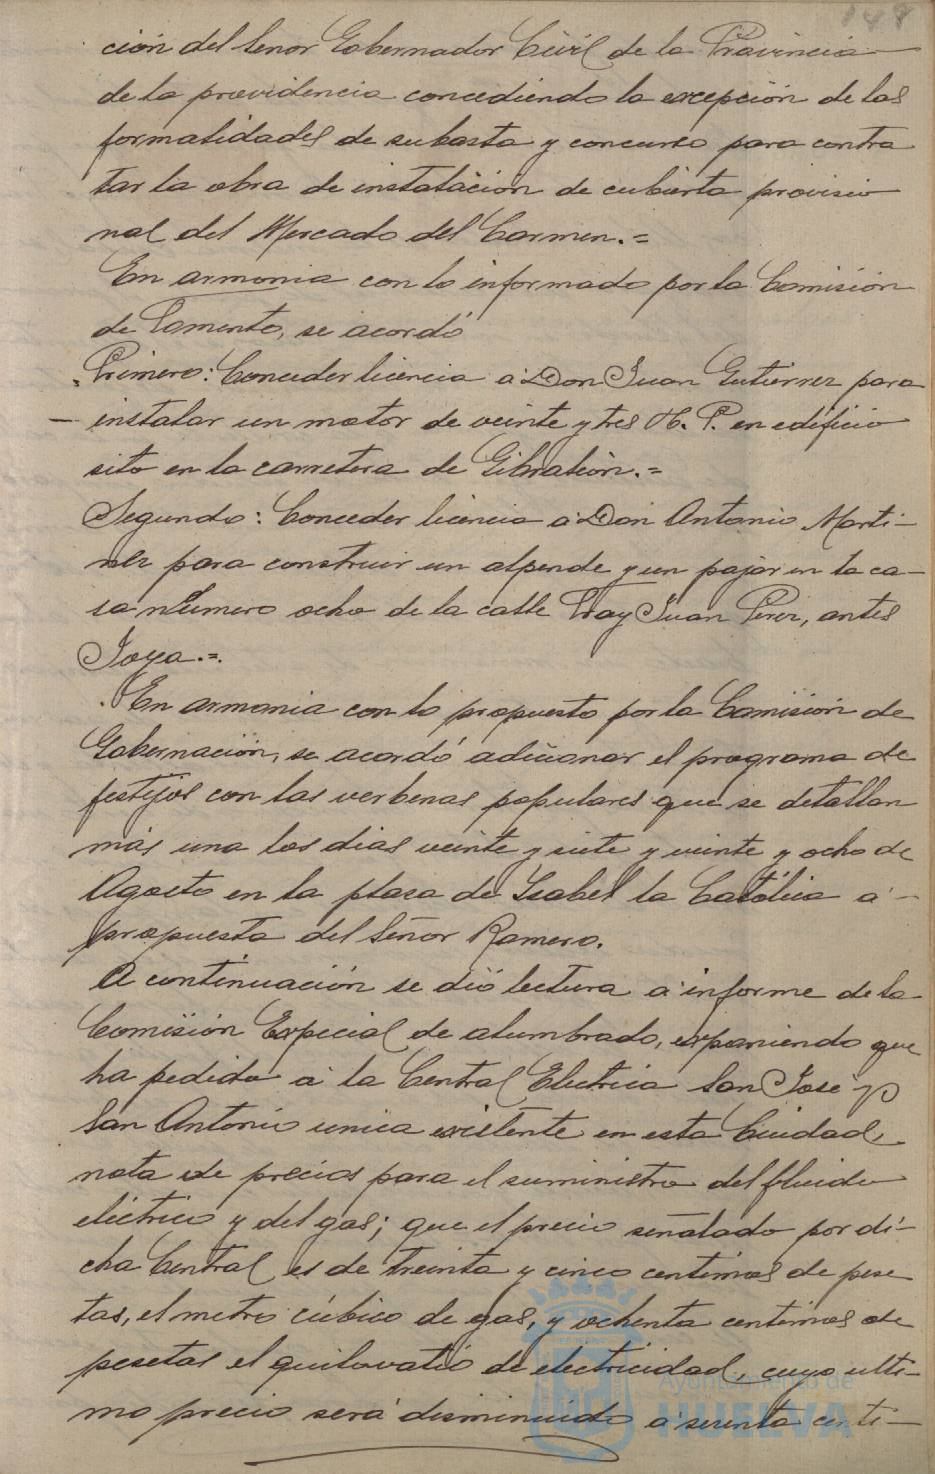 148
ción del Señor Gobernador Civil de la Provincia
de la providencia concediendo la excepción de las
formalidades de subasta y concurso para contra
tar la obra de instalación de cubierta provisio
nal del Mercado del Carmen.=
En armonia con lo informado por la Comisión
de Fomento, se acordó
Primero: Conceder licencia a Don Juan Gutierrez para
instalar un motor de veinte y tres H. P. en edificio
sito en la carretera de Gibraleón.=
Segundo: Conceder licencia a Don Antonio Marti-
nez para construir un alpende y un pajar en la ca-
sa número ocho de la calle Fray Juan Perez, antes
Joya.=.
En armonia con lo propuesto por la Comisión de
Gobernación, se acordó adicionar el programa de
festejos con las verbenas populares que se detallan
más una los dias veinte y siete y veinte y ocho de
Agosto en la plaza de Isabel la Católica a
propuesta del Señor Ramero.
A continuación se dió lectura a informe de la
Comisión Especial de alumbrado, exponiendo que
ha pedido a la Central Electrica San José y
San Antonio unica existente en esta Ciudad,
nota de precios para el suministro del fluido
eléctrico y del gas; que el precio señalado por di-
cha Central es de treinta y cinco centimos de pese
tas, el metro cúbico de gas, y ochenta centimos de
pesetas el quilovatio de electricidad, cuyo ulti-
mo precio será disminuido a sesenta centi-
Ayuntamiento de
HUELVA